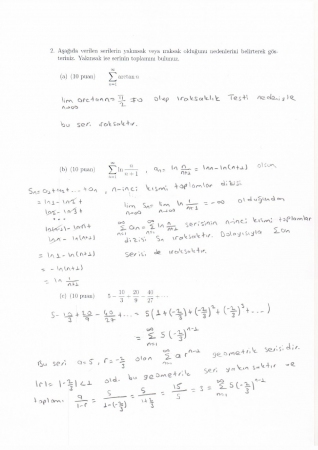 2. Aşağıda verilen serilerin yakınsak veya ıraksak olduğunu nedenlerini belirterek gös-
teriniz. Yakınsak ise serinin toplamını bulunuz.
(a) (10 puan) ∞ ∑ n=1 arctan n
lim n→∞ arctann = π/2 ≠ 0 olup ıraksaklık Testi nedeniyle
bu seri ıraksaktır.
(b) (10 puan) ∞ ∑ n=1 ln n/(n+1) , an = ln n/(n+1) = lnn - ln(n+1) olsun
Sn = a1 + a2 + ... + an , n-inci kısmi toplamlar dizisi
= ln1 - ln2 +
ln2 - ln3 +
lim n→∞ Sn = lim n→∞ ln 1/(n+1) = -∞ olduğundan
∞ ∑ n=1 an = ∞ ∑ n=1 ln n/(n+1) serisinin n-inci kısmi toplamlar
lnn - ln(n+1)
dizisi Sn ıraksaktır. Dolayısıyla ∑an
= ln1 - ln(n+1)
serisi de ıraksaktır.
= - ln(n+1)
= ln 1/(n+1)
(c) (10 puan) 5 - 10/3 + 20/9 - 40/27 + ...
5 - 10/3 + 20/9 - 40/27 + ... = 5(1 + (-2/3) + (-2/3)^2 + (-2/3)^3 + ...)
= ∞ ∑ n=1 5(-2/3)^n-1
Bu seri a=5, r=-2/3 olan ∞ ∑ n=1 ar^n-1 geometrik serisidir.
|r| = |-2/3| < 1 old. bu geometrik seri yakınsaktır ve
toplamı a/(1-r) = 5/(1-(-2/3)) = 5/(1+2/3) = 15/5 = 3 = ∞ ∑ n=1 5(-2/3)^n-1